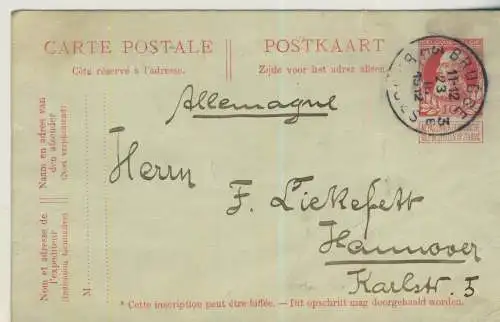 CARTE POSTALE
POSTKAART
Côté réservé à l'adresse.
Zijde voor het adres alleen.
Allemagne
Herrn
F. Liekefett
Hannover
Karlstr. 5
Naam en adres van
den afzender
Nom et adresse de
l'expéditeur
M
* Cette inscription peut être biffée. — Dit opschrift mag doorgehaald worden.
11-12
23
1912
3